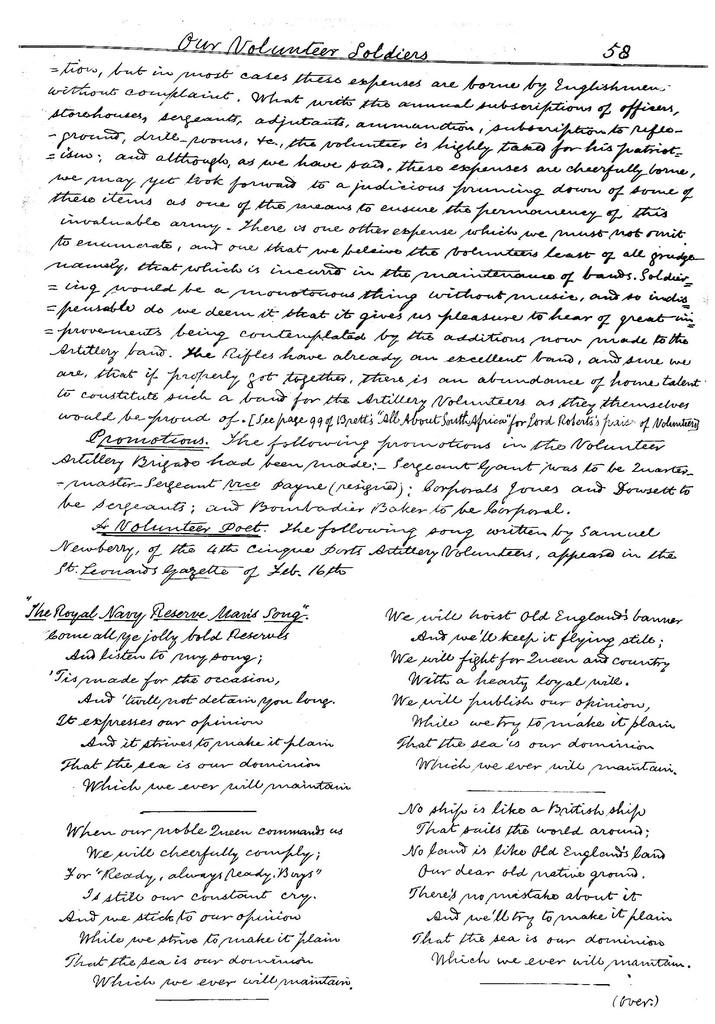 Our Volunteer Soldiers 58
=tion, but in most cases these expenses are borne by Englishmen
without complaint. What with the annual subscriptions of officers,
storehouses, sergeants, adjutants, ammunition, subscription to rifle-
-ground, drill-rooms, &c., the volunteer is highly taxed for his patriot-
=ism; and although, as we have said, these expenses are cheerfully borne,
we may yet look forward to a judicious pruning down of some of
these items as one of the means to ensure the permanency of this
invaluable army. There is one other expense which we must not omit
to enumerate, and one that we beleive the volunteers least of all grudge
namely, that which is incurred in the maintenance of bands. Soldier-
=ing would be a monotonous thing without music, and so indis=
=pensable do we deem it that it gives us pleasure to hear of great im=
=provements being contemplated by the additions now made to the
Artillery band. The Rifles have already an excellent band, and sure we
are, that if properly got together, there is an abundance of home talent
to constitute such a band for the Artillery Volunteers as they themselves
would be proud of. [See page 99 of Brett's "All About South Africa" for Lord Roberts's praise of Volunteers]
Promotions. The following promotions in the Volunteer
Artillery Brigade had been made:- Sergeant Gant was to be Quarter-
-master-Sergeant vice Payne (resigned); Corporals Jones and Dowsett to
be Sergeants; and Bombadier Baker to be Corporal.
A Volunteer Poet. The following song written by Samuel
Newberry, of the 4th Cinque Ports Artillery Volunteers, appeared in the
St. Leonards Gazette of Feb. 16th
"The Royal Navy Reserve Man's Song".
Come all ye jolly bold Reserves
And listen to my song;
'Tis made for the occasion,
And 'twill not detain you long.
It expresses our opinion
And it strives to make it plain
That the sea is our dominion
Which we ever will maintain
When our noble Queen commands us
We will cheerfully comply;
For "Ready, always ready, Boys"
Is still our constant cry.
And we stick to our opinion
While we strive to make it plain
That the sea is our dominion
Which we ever will maintain.
We will hoist Old England's banner
And we'll keep it flying still;
We will fight for Queen and country
With a hearty loyal will.
We will publish our opinion,
While we try to make it plain
That the sea is our dominion
Which we ever will maintain.
No ship is like a British ship
That sails the world around;
No land is like Old England's land
Our dear old native ground.
There's no mistake about it
And we'll try to make it plain
That the sea is our dominion
Which we ever will maintain.
(over.)